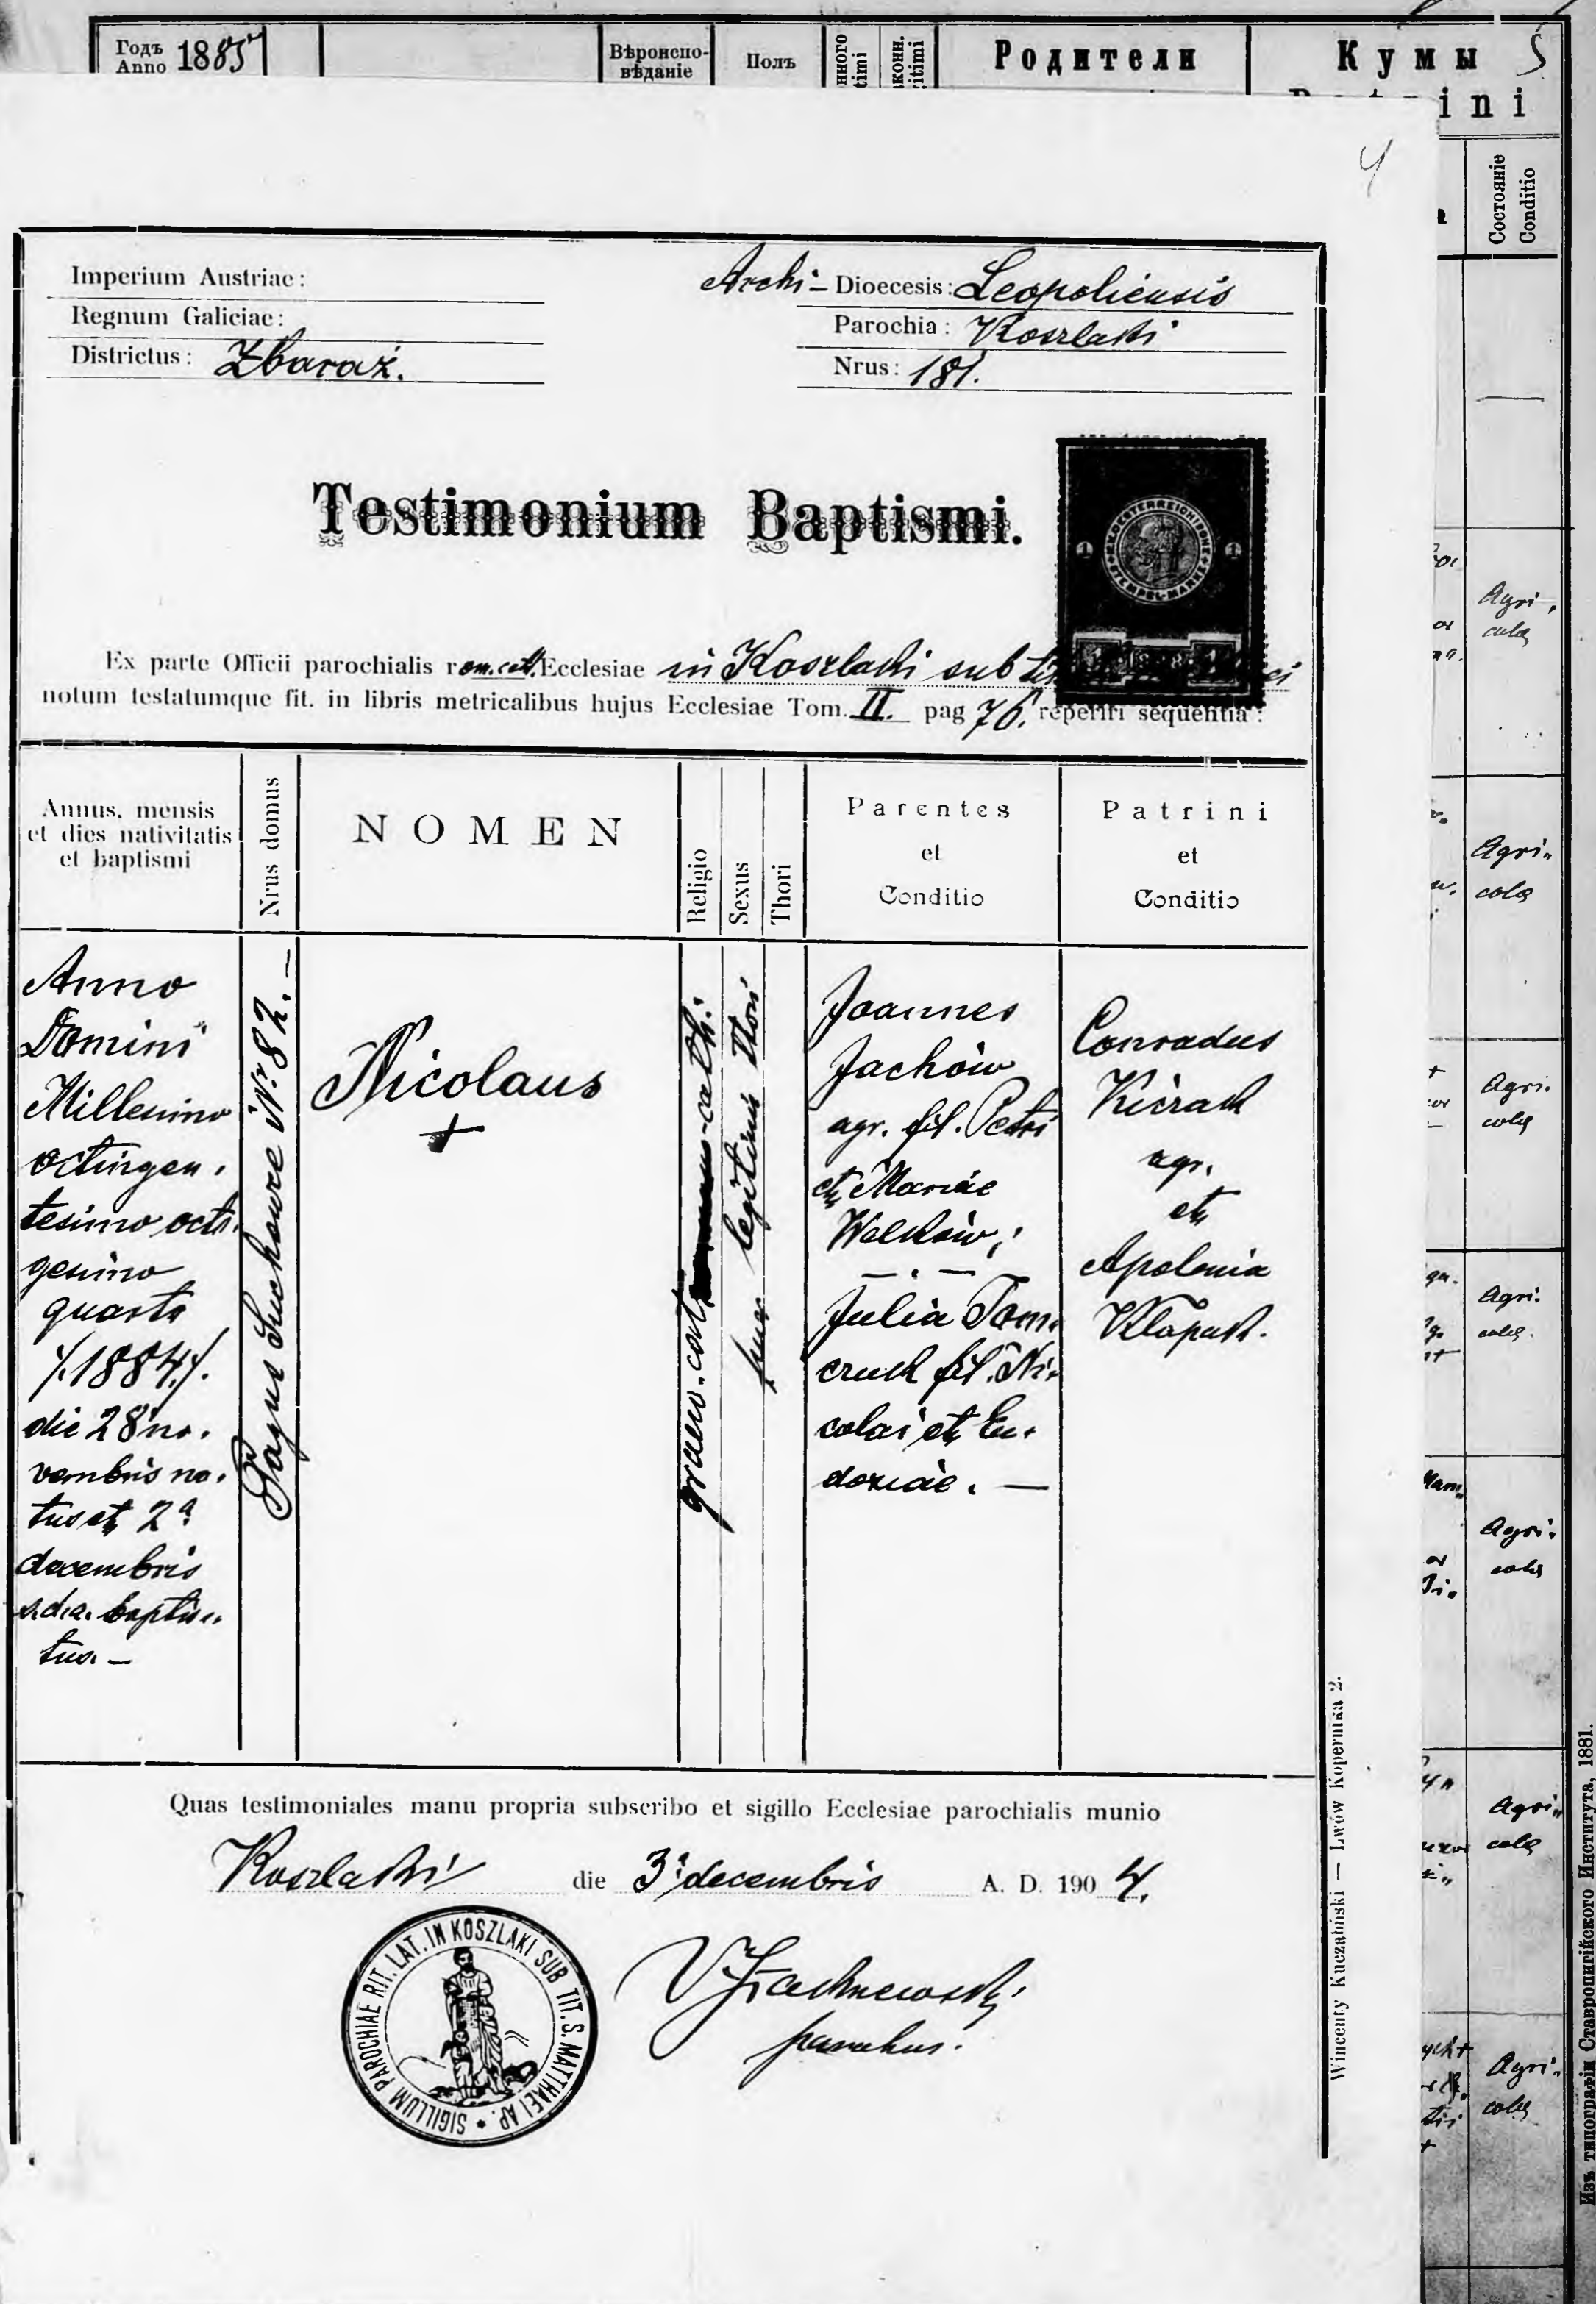 Годъ
Anno 1885
Вѣроиспо-
вѣданіе
Полъ
Родители
Кумы
5
ini
Состояніе
Conditio
4
Imperium Austriae:
Regnum Galiciae:
Districtus: Zbaraż.
Archi- Dioecesis: Leopoliensis
Parochia: Koszlaki
Nrus: 181.
Testimonium Baptismi.
Ex parte Officii parochialis rom. cath. Ecclesiae in Koszlaki sub
notum testatumque fit. in libris metricalibus hujus Ecclesiae Tom. II. pag 76. reperiri sequentia:
Annus, mensis
et dies nativitatis
et baptismi
Nrus domus
NOMEN
Religio
Sexus
Thori
Parentes
et
Conditio
Patrini
et
Conditio
Anno
Domini
Millesimo
octingen.
tesimo octo.
gesimo
quarto
/.1884./.
die 28 no.
vembris na.
tus et 2ª
decembris
baptisa.
tus. —
Pagus Suchowce Nr. 82. —
Nicolaus
+
graeco. cat.
legitimi thori
Joannes
Jachów
agr. fil. Petri
et Mariae
Walków;
— . —
Julia Tom.
cruk fil. Ni.
colai et Eu.
doxiae. —
Conradus
Kierak
agr.
et
Apolonia
Kłapak.
Quas testimoniales manu propria subscribo et sigillo Ecclesiae parochialis munio
Koszlaki die 3 decembris A. D. 1904.
parochus.
SIGILLUM PAROCHIAE RIT. LAT. IN KOSZLAKI SUB TIT. S. MATTHAEI AP.
Wincenty Kuczabiński — Lwów Kopernika 2.
Agri,
cola
Agri„
cola
Agri.
cola
Agri.
cola.
Agri.
cola
Agri„
cola
Agri„
cola
Изъ типографіи Ставропигійского Института, 1881.